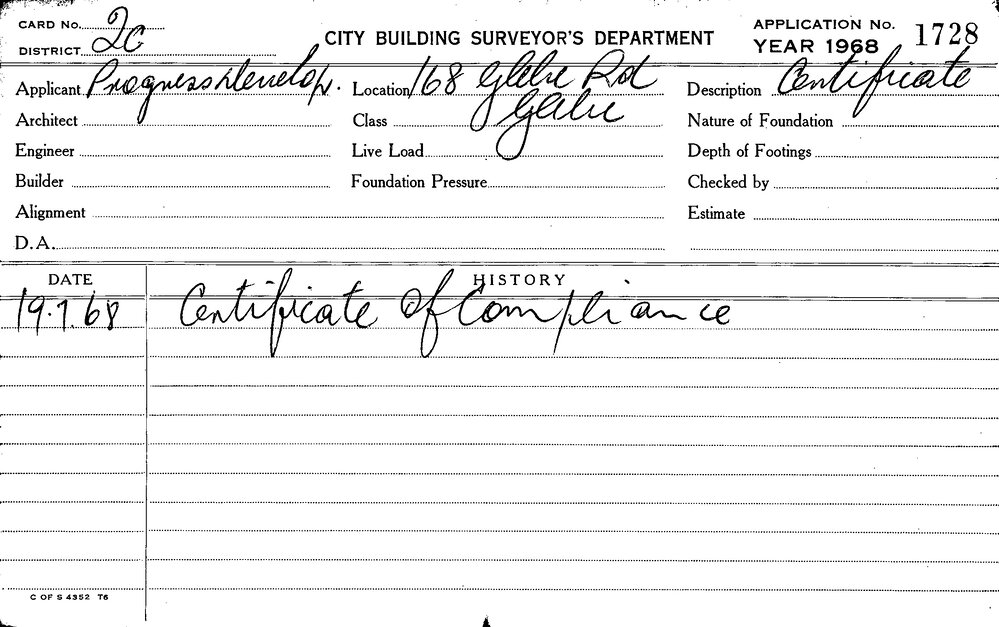 CARD No. 2c
DISTRICT
CITY BUILDING SURVEYOR'S DEPARTMENT
APPLICATION No. 1728
YEAR 1968
Applicant Progress Develop. Location 168 Glebe Rd Description Certificate
Architect Class Glebe Nature of Foundation
Engineer Live Load Depth of Footings
Builder Foundation Pressure Checked by
Alignment Estimate
D.A.
DATE HISTORY
19.7.68 Certificate of Compliance
C OF S 4352 T6